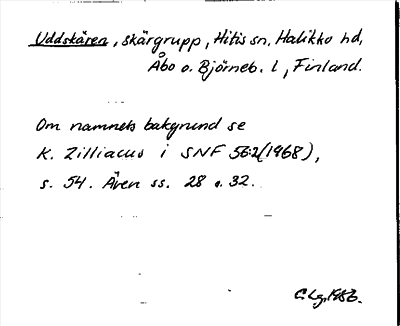 Uddskären, skärgrupp, Hitis sn, Halikko hd,
Åbo o. Björneb. l, Finland.
Om namnets bakgrund se
K. Zilliacus i SNF 56:2(1968),
s. 54. Även ss. 28 o. 32.
C. Lg. 1986.